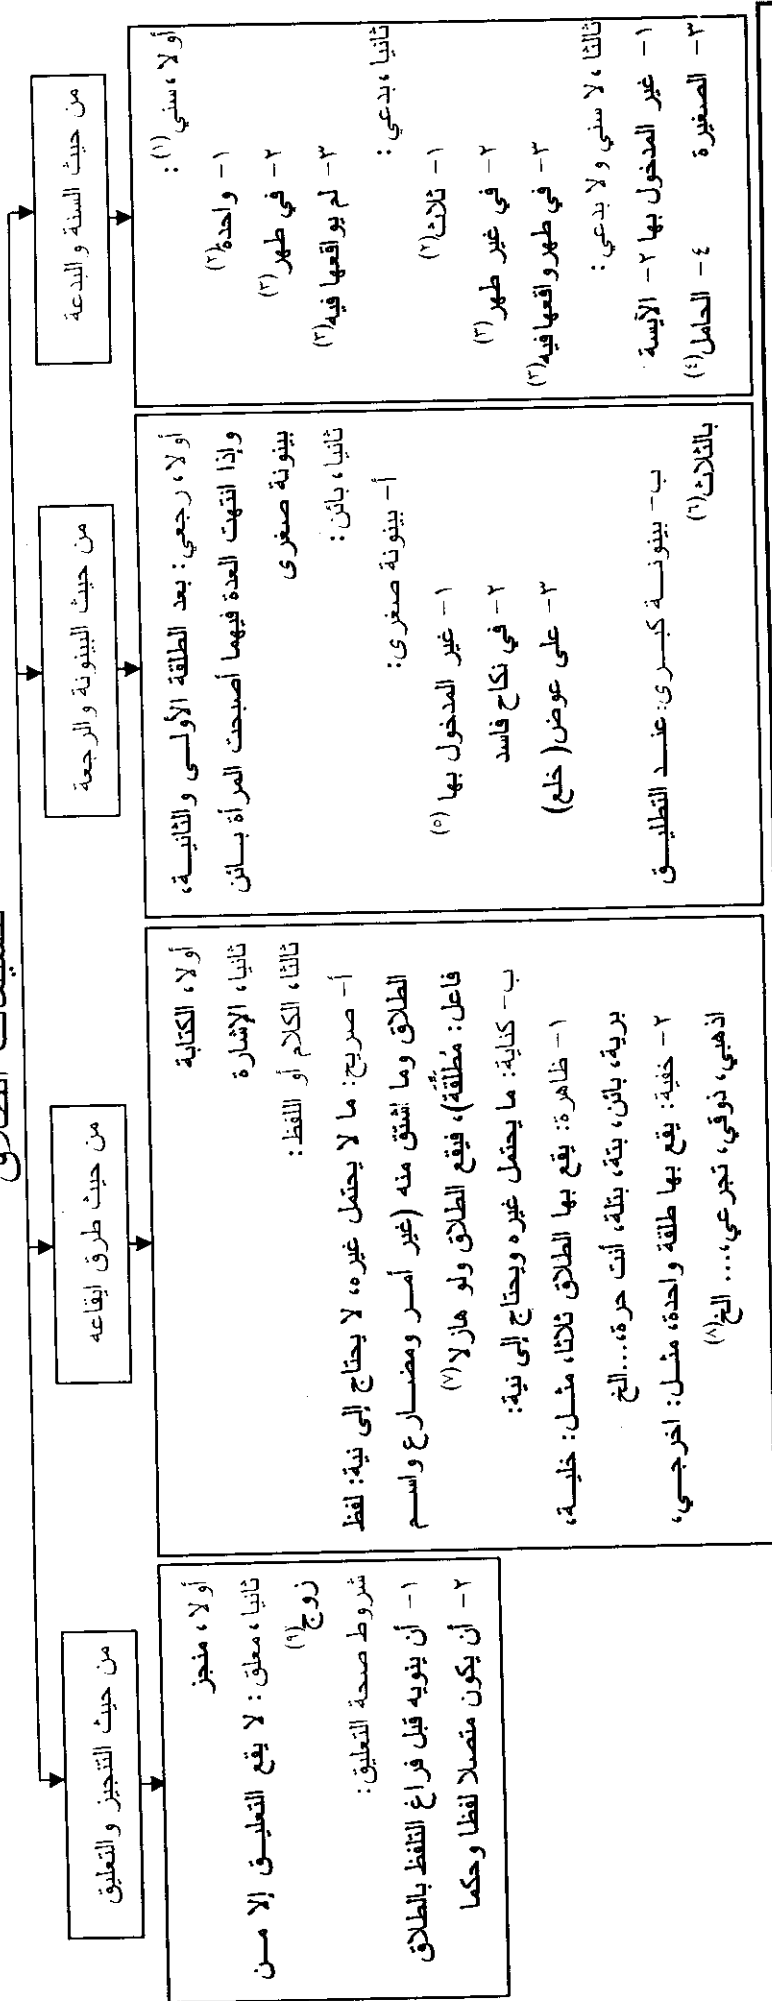 من حيث السنة والبدعة
أولا، سني(١):
١- واحدة(٢)
٢- في طهر(٣)
٣- لم يواقعها فيه(٣)
ثانيا، بدعي:
١- ثلاث(٢)
٢- في غير طهر(٣)
٣- في طهر واقعها فيه(٣)
ثالثا، لا سني ولا بدعي:
١- غير المدخول بها ٢- الآيسة
٣- الصغيرة ٤- الحامل(٤)
من حيث البينونة والرجعة
أولا، رجعي: بعد الطلقة الأولى والثانية،
وإذا انتهت العدة فيهما أصبحت المرأة بائن
بينونة صغرى
ثانيا، بائن:
أ- بينونة صغرى:
١- غير المدخول بها(٥)
٢- في نكاح فاسد
٣- على عوض (خلع)
ب- بينونة كبرى: عند التطليق
بالثلاث(٦)
من حيث طرق ايقاعه
أولا، الكتابة
ثانيا، الإشارة
ثالثا، الكلام أو اللفظ:
أ- صريح: ما لا يحتمل غيره، لا يحتاج إلى نية: لفظ
الطلاق وما اشتق منه (غير أمر ومضارع واسم
فاعل: مُطَلِّقة)، فيقع الطلاق ولو هازلا(٧)
ب- كناية: ما يحتمل غيره ويحتاج إلى نية:
١- ظاهرة: يقع بها الطلاق ثلاثا، مثل: خلية،
برية، بائن، بتة، بتلة، أنت حرة،...الخ
٢- خفية: يقع بها طلقة واحدة، مثل: اخرجي،
اذهبي، ذوقي، تجرعي،... الخ(٨)
من حيث التنجيز والتعليق
أولا، منجز
ثانيا، معلق: لا يقع التعليق إلا من
زوج(٩)
شروط صحة التعليق:
١- أن ينويه قبل فراغ التلفظ بالطلاق
٢- أن يكون متصلا لفظا وحكما